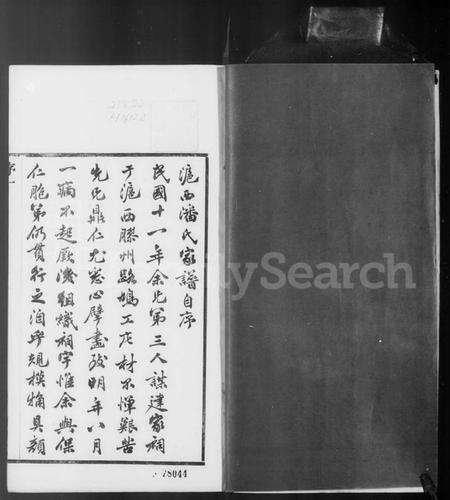 滬西潘氏家譜自序
民國十一年余兄弟三人謀建家祠
于滬西膠州路鳩工庀材不憚艱苦
先兄鼎仁尤悉心擘畫致明年八月
一病不起厥後組織祠宇惟余與保
仁胞弟仍貫行之洎乎規模犕具顏
序
一
FamilySearch
78044